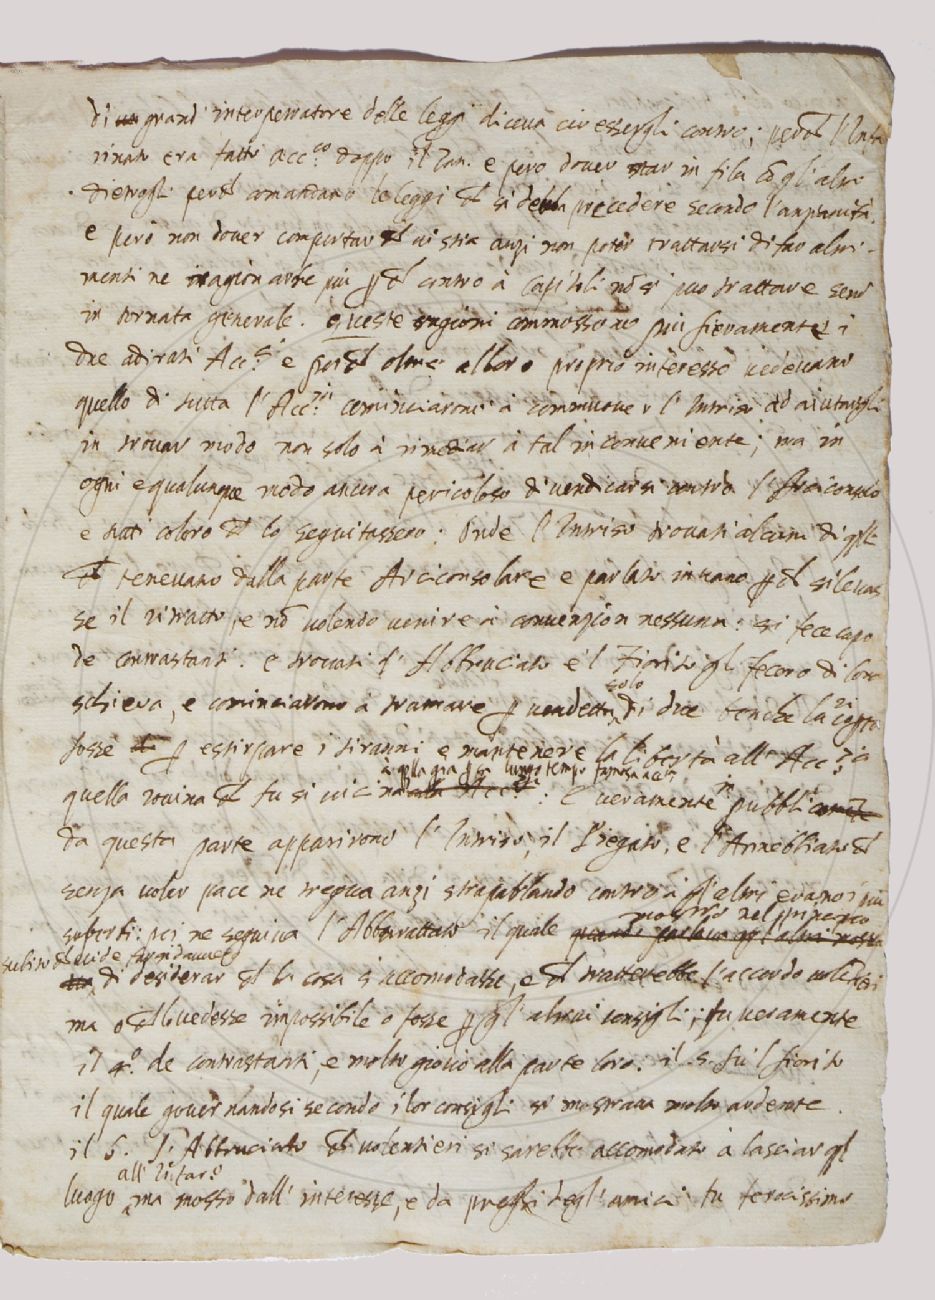 di un grand' interpetratore delle leggi diceva cio essergli contro; perche l'Infa
rinato era fatto Acc.co doppo il Zan. e pero dover star in fila co gl'altri
dietrogli perche comandano le leggi che si debba precedere secondo l'anzianità.
e però non dover comportar che ui stia anzi non poter trattarsi di far altri-
menti ne ragionarne piu perche contro à Capitoli nō si puo trattare se nō
in tornata generale. Queste ragioni commossero piu fieramente i
due adirati Acc.ci e poiche oltre al loro proprio interesse uedeuano
quello di tutta l'Acc.a cominciarono à commuouer l'Intriso ad aiutargli
in trouar modo non solo à rimediar à tal inconueniente; ma in
ogni e qualunque modo ancora pericoloso di uendicarsi contro l'Arciconsolo
e tutti coloro che lo seguitassero: Onde l'Intriso trouati alcuni di qlli
che teneuano dalla parte Arciconsolare e parlato in uano perche si leuas
se il ritratto, e nō uolendo uenire à conuenzion nessuna: si fece capo
de contrastanti. e trouati l'Abbruciato e 'l Fiorito gli fecero di loro
schiera, e cominciarono à tramare per uendetta, solo di due benche la
fosse per estirpare i tiranni e mantenere la libertà all'Acc.a
quella rouina che fu si uicina: E ueramente in pubblico
da questa parte apparirono l'Intriso, il Pregato, e l'Annebbiato che
senza uoler pace ne tregua anzi strapabblando contro à gl'altri erano i piu
superbi: poi ne seguiua l'Abburattato il quale mostrò nel principio
di desiderar che la cosa s'accomodasse, e che tratterebbe l'accordo uolētieri
ma o che la uedesse impossibile o fosse per gl'altrui consigli; fu ueramente
il 4.o de contrastanti, e molto giouò alla parte loro. il 5. fu 'l fiorito
il quale gouernandosi secondo i lor consigli si mostraua molto ardente.
il 6. l'Abbruciato che uolentieri si sarebbe accomodato à lasciar ql
luogo all'Infar.o ma mosso dall'interesse, e da preghi degl'amici fu ferocissimo